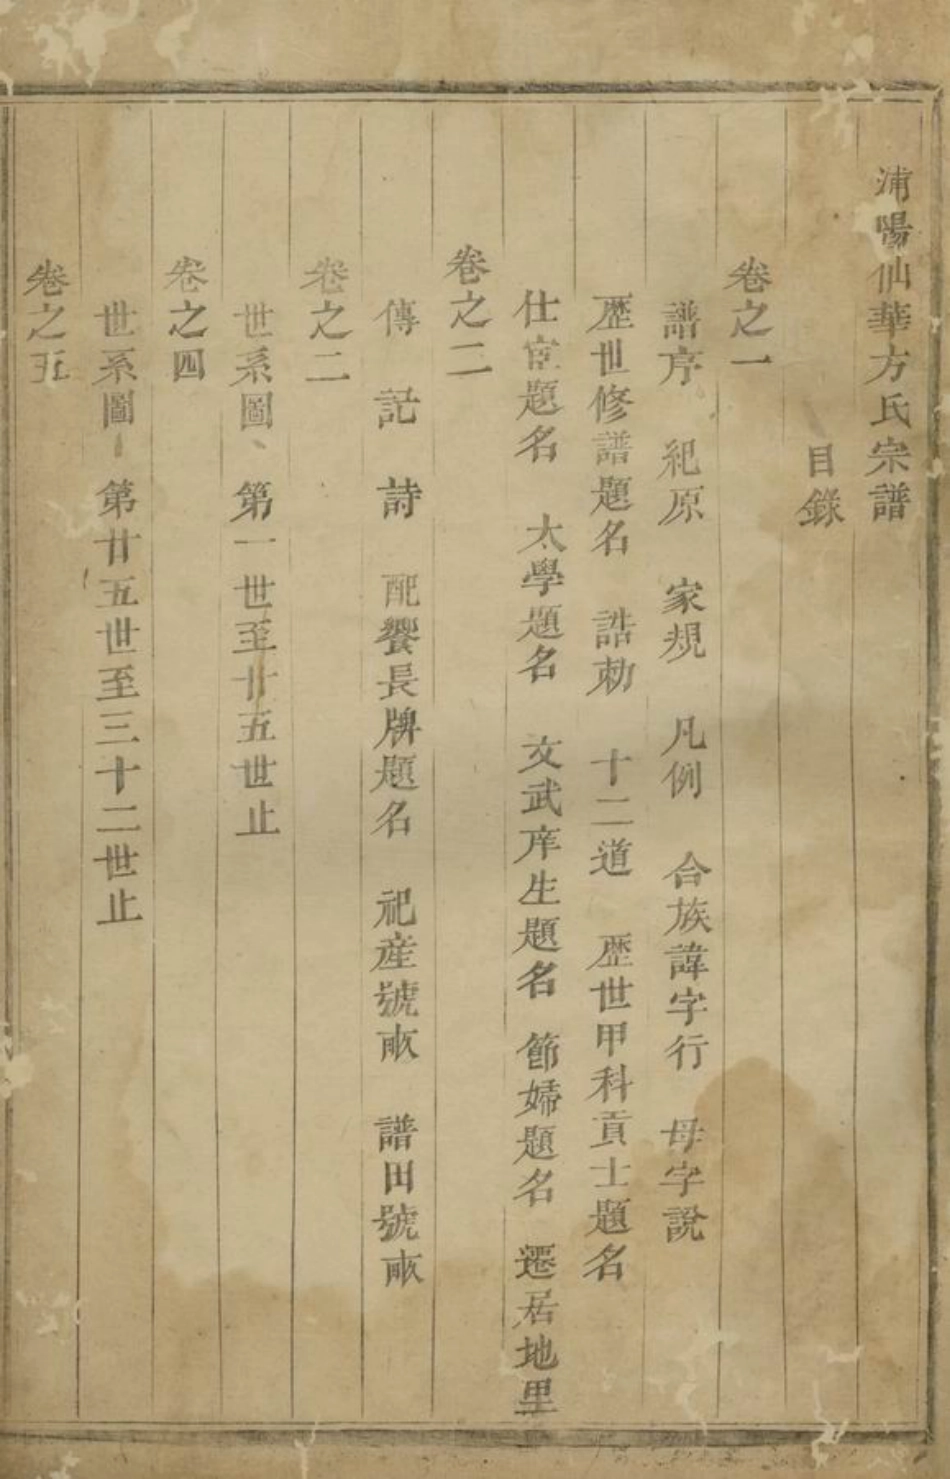 浦陽仙華方氏宗譜
目錄
卷之一
譜序 紀原 家規 凡例 合族諱字行 母字說
歷世修譜題名 誥勅 十二道 歷世甲科貢士題名
仕宦題名 太學題名 文武庠生題名 節婦題名 遷居地里
卷之二
傳 記 詩 配饗長牌題名 祀產號畝 譜田號畝
卷之二
世系圖 第一世至廿五世止
卷之四
世系圖 第廿五世至三十二世止
卷之五